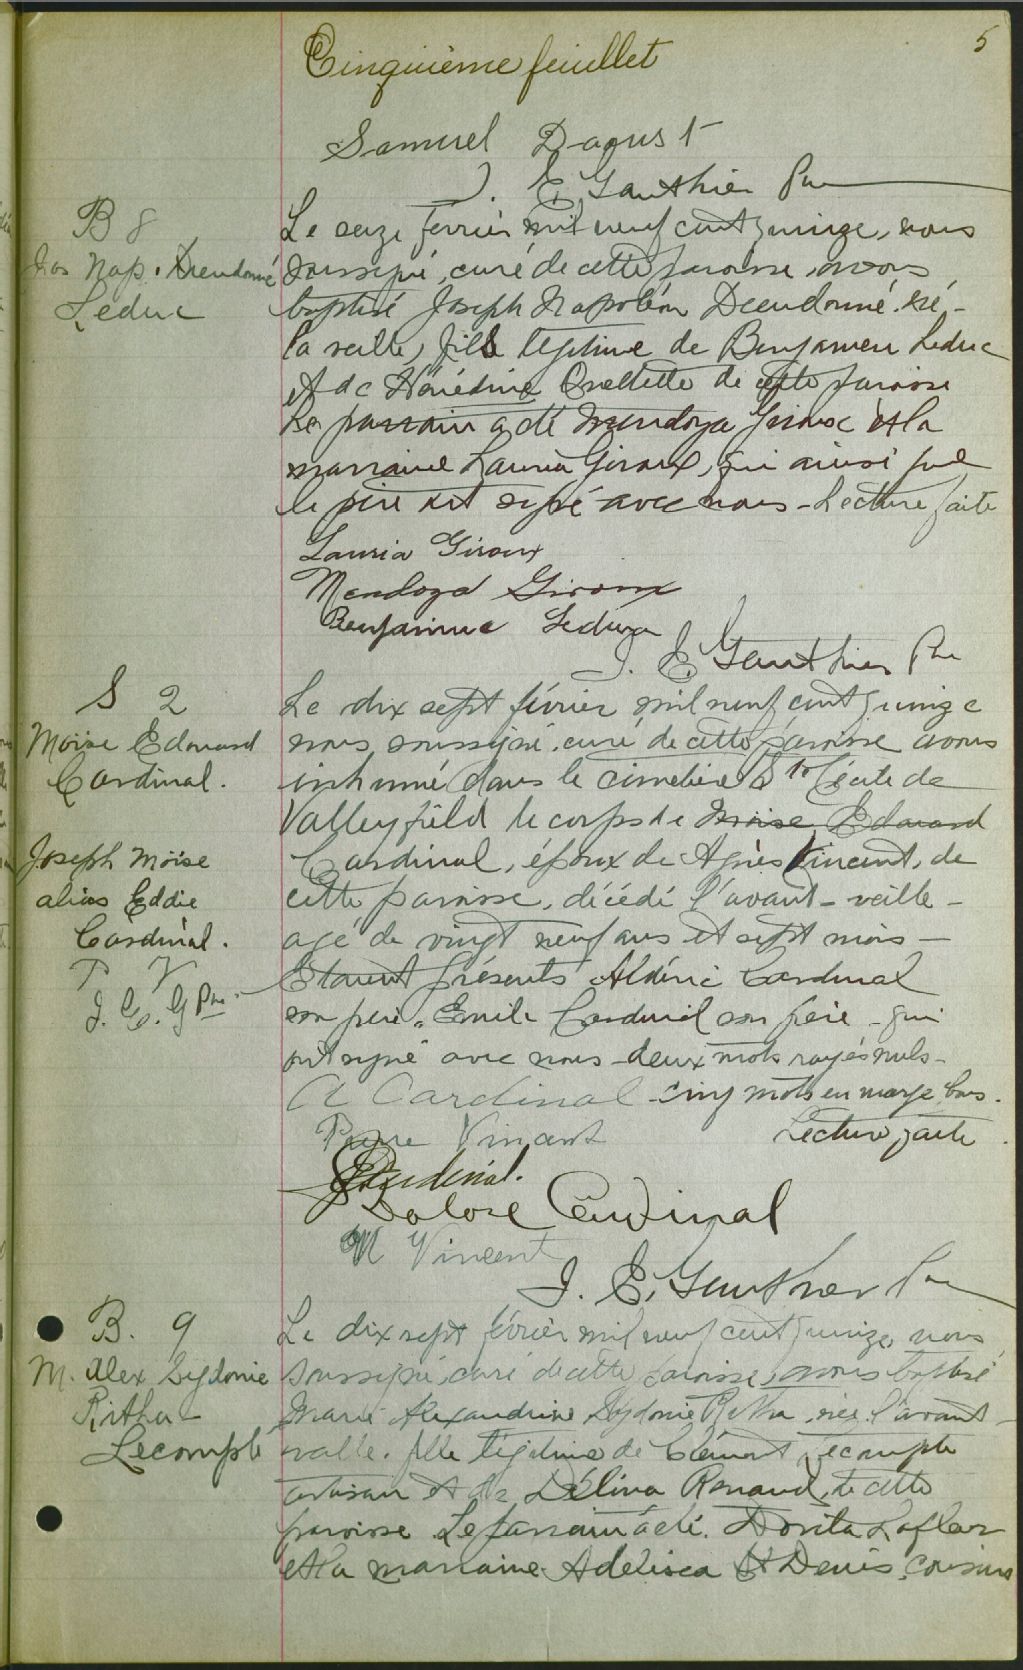 5
Cinquième feuillet
Samuel Daoust
J. E. Gauthier Ptre
B 8
Jos Nap. Dieudonné
Leduc
Le seize février mil neuf cent quinze, nous
soussigné, curé de cette paroisse, avons
baptisé Joseph Napoléon Dieudonné, né
la veille, fils légitime de Benjamin Leduc
et de Ouellette de cette paroisse
Le parrain a été Mendoza Giroux et la
marraine Lauria Giroux, qui ainsi que
le père ont signé avec nous - Lecture faite
Lauria Giroux
Mendoza Giroux
Benjamin Leduc
J. E. Gauthier Ptre
S 2
Moïse Edouard
Cardinal.
Joseph Moïse
alias Eddie
Cardinal.
P V
J. E. G Ptre
Le dix sept février mil neuf cent quinze
nous, soussigné, curé de cette paroisse avons
inhumé dans le cimetière Ste Cécile de
Valleyfield le corps de Moïse Edouard
Cardinal, époux de Agnès Vincent, de
cette paroisse, décédé l'avant-veille -
agé de vingt neuf ans et sept mois -
Etaient présents Aldéric Cardinal
son père, Emile Cardinal son frère - qui
ont signé avec nous - deux mots rayés nuls -
A Cardinal - cinq mots en marge bons.
Pierre Vincent Lecture faite.
Cardinal.
Dolore Cardinal
M Vincent
J. E. Gauthier Ptre
B. 9
M. Alex Lydonie
Ritha
Lecompte
Le dix sept février mil neuf cent quinze, nous
soussigné, curé de cette paroisse, avons baptisé
Marie Alexandrine Lydonie Ritha, née l'avant-
veille, fille légitime de Clément Lecompte
artisan et de Délina Renaud, de cette
paroisse. Le parrain a été Dorita Lafleur
et la marraine Adélisca St Denis, cousins